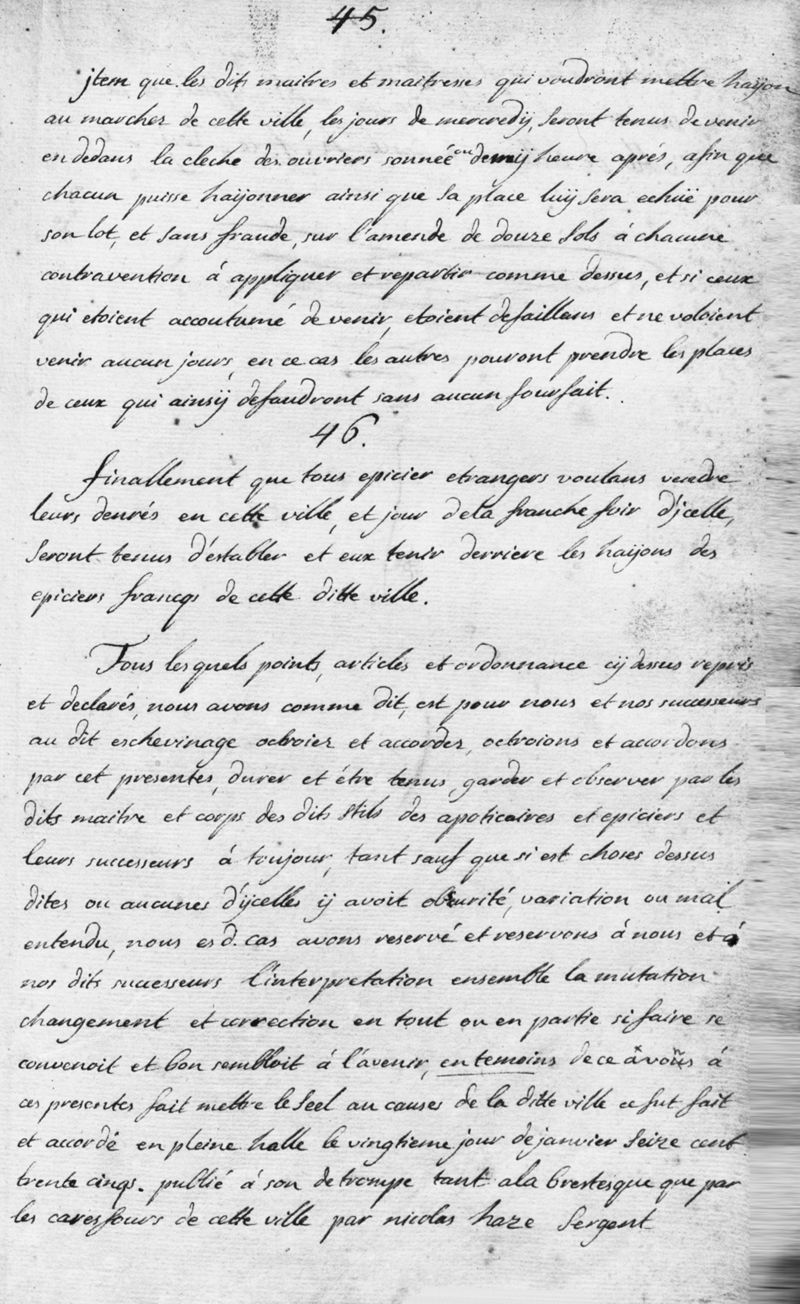 45.
jtem que les dits maitres et maitresses qui voudront mettre haÿon
au marchez de cette ville, les jours de mercredÿ, seront tenus de venir
en dedans la cleche des ouvriers sonnéé ou demÿ heure aprés, afin que
chacun puisse haÿonner ainsi que sa place luÿ sera echüe pour
son lot, et sans fraude, sur l'amende de douze sols á chacune
contravention á appliquer et repartir comme dessus, et si ceux
qui etoient accoutumé de venir, etoient defaillans et ne voloient
venir aucun jours, en ce cas les autres pouront prendre les places
de ceux qui ainsÿ defaudront sans aucun fourfait.
46.
finallement que tous epicier etrangers voulans vendre
leurs denrés en cette ville, et jour de la franche foir d'jcelle,
seront tenus d'establer et eux tenir derriere les haÿons des
epiciers francqs de cette ditte ville.
Tous lesquels points, articles et ordonnance cÿ dessus repris
et declarés, nous avons comme dit, est pour nous et nos successeurs
au dit eschevinage octroiez et accordez, octroions et accordons
par cet presentes, durer et étre tenus, garder et observer par les
dits maitre et corps des dits stils des apoticaires et epiciers et
leurs successeurs á toujour, tant sauf que si est choses dessus
dites ou aucunes d'ÿcelles ÿ avoit obscurité, variation ou mal
entendu, nous es d. cas avons reservé et reservons á nous et á
nos dits successeurs l'interpretation ensemble la mutation
changement et correction en tout ou en partie si faire se
convenoit et bon sembloit á l'avenir, en temoins de ce avons á
ces presentes fait mettre le seel au causes de la ditte ville ce fut fait
et accordé en pleine halle le vingtieme jour de janvier seize cent
trente cinqs. publié á son de trompe tant a la brestesque que par
les caresfours de cette ville par nicolas haze sergent